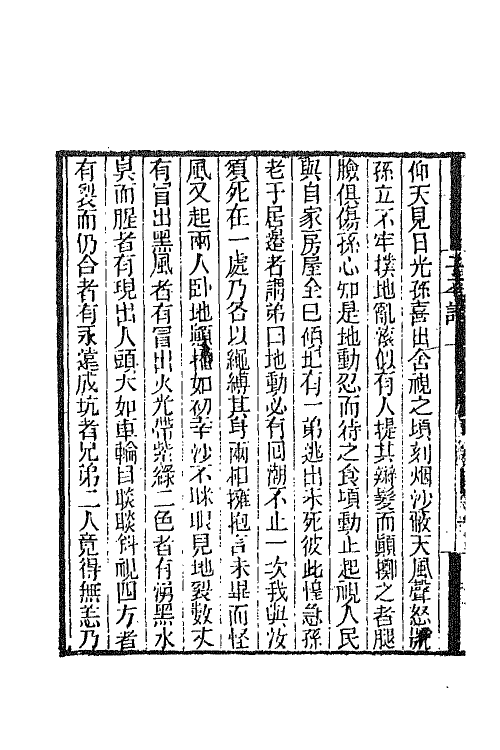 仰天見日光孫喜出舍視之頃刻烟沙蔽天風聲怒號
孫立不牢撲地亂滾似有人提其辮髮而顛擲之者腿
臉俱傷孫心知是地動忍而待之食頃動止起視人民
與自家房屋全已傾圮有一弟逃出未死彼此惶急孫
老于居邊者謂弟曰地動必有囘潮不止一次我與汝
須死在一處乃各以繩縛其身兩相擁抱言未畢而怪
風又起兩人卧地顛播如初幸沙不眯眼見地裂數丈
有冒出黑風者有冒出火光帶紫綠二色者有湧黑水
臭而腥者有現出人頭大如車輪目睒睒斜視四方者
有裂而仍合者有永遠成坑者兄弟二人竟得無恙乃